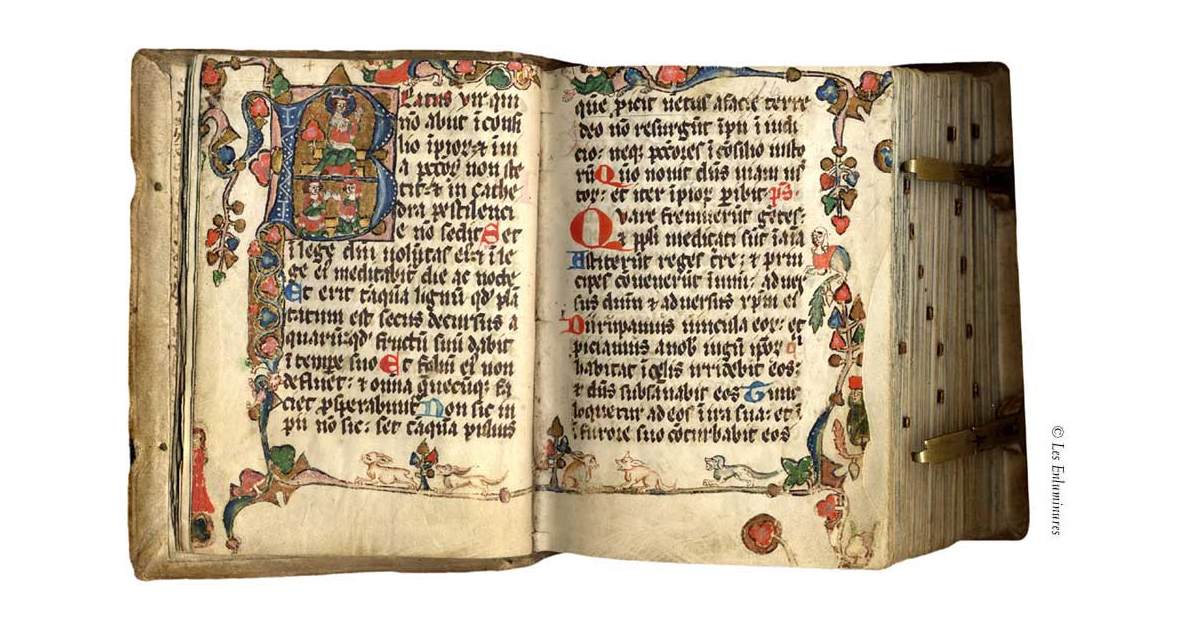 Beatus vir qui
nō abiit ī consi
lio īpior⁊ ⁊ in ui
a pccōr non ste
tit: ⁊ in cathe
dra pestilenci
e nō sedit Set
ī lege dni uolūtas ei⁊ ī le
ge ei meditabit die ac nocte
Et erit tāquā lignū qd plā
tatum est secus decursus a
quarū: qd fructū suū dabit
ī tempe suo Et foliū ei non
defluet: ⁊ omīa q̄ecūq; fa
ciet psperabunt Non sic in
pii nō sic: set tāquā puluis
quē picit uetus a facie terre
Ideo nō resurgūt īpii ī iudi
cio: neq; pccōres ī cōsilio iusto
rū Quō nouit dūs uiam ius
tor: et iter īpior pibit ps.
Quare fremuerūt gētes:
⁊ ppli meditati sūt īaīa
Astiterūt reges tre: ⁊ prin
cipes conuenerūt ī unū: aduer
sus dnm ⁊ aduersus xpm ei
Dirūpamus uincula eor: et
piciamus a nob iugū ipor
habitat ī celis irridebit eos:
⁊ dūs subsanabit eos Tunc
loquetur ad eos ī ira sua: et ī
furore suo cōturbabit eos
© Les Enluminures